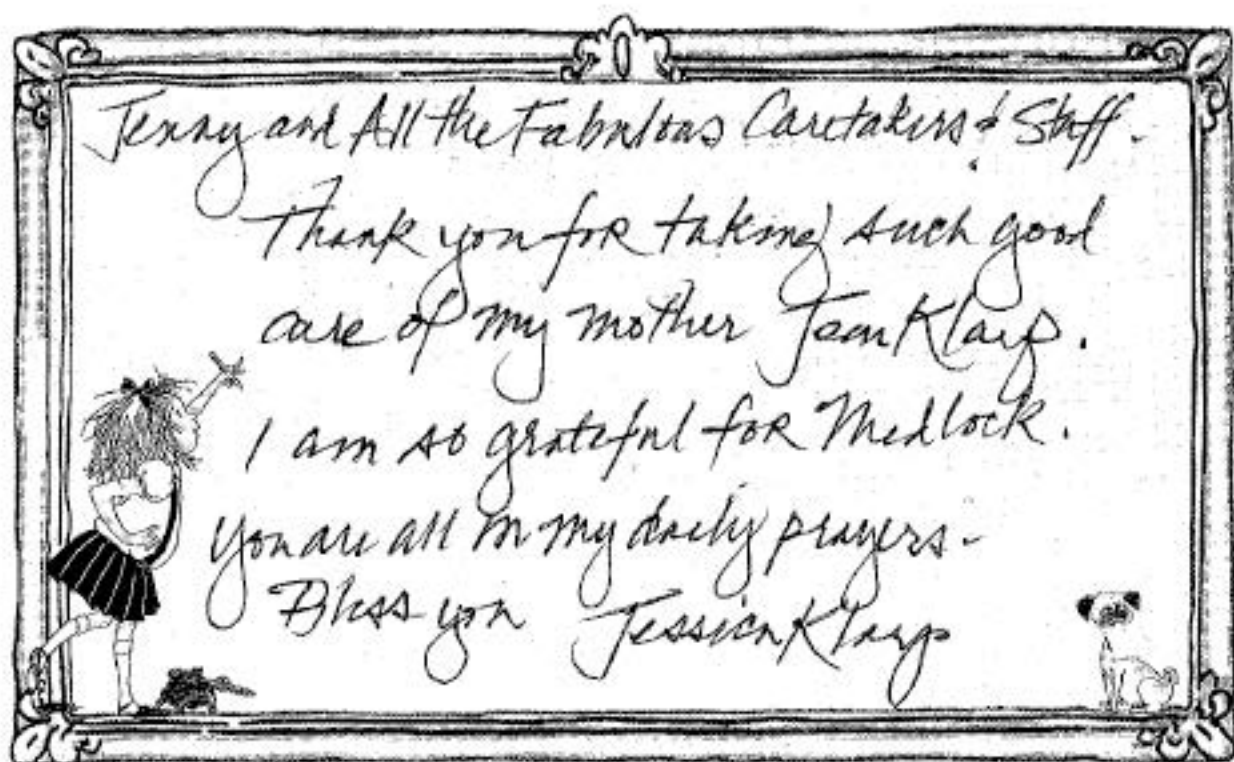 Jenny and All the Fabulous Caretakers & Staff -
Thank you for taking such good
care of my mother Jean Klarp.
I am so grateful for Medlock.
You are all in my daily prayers -
Bless you Jessica Klarp